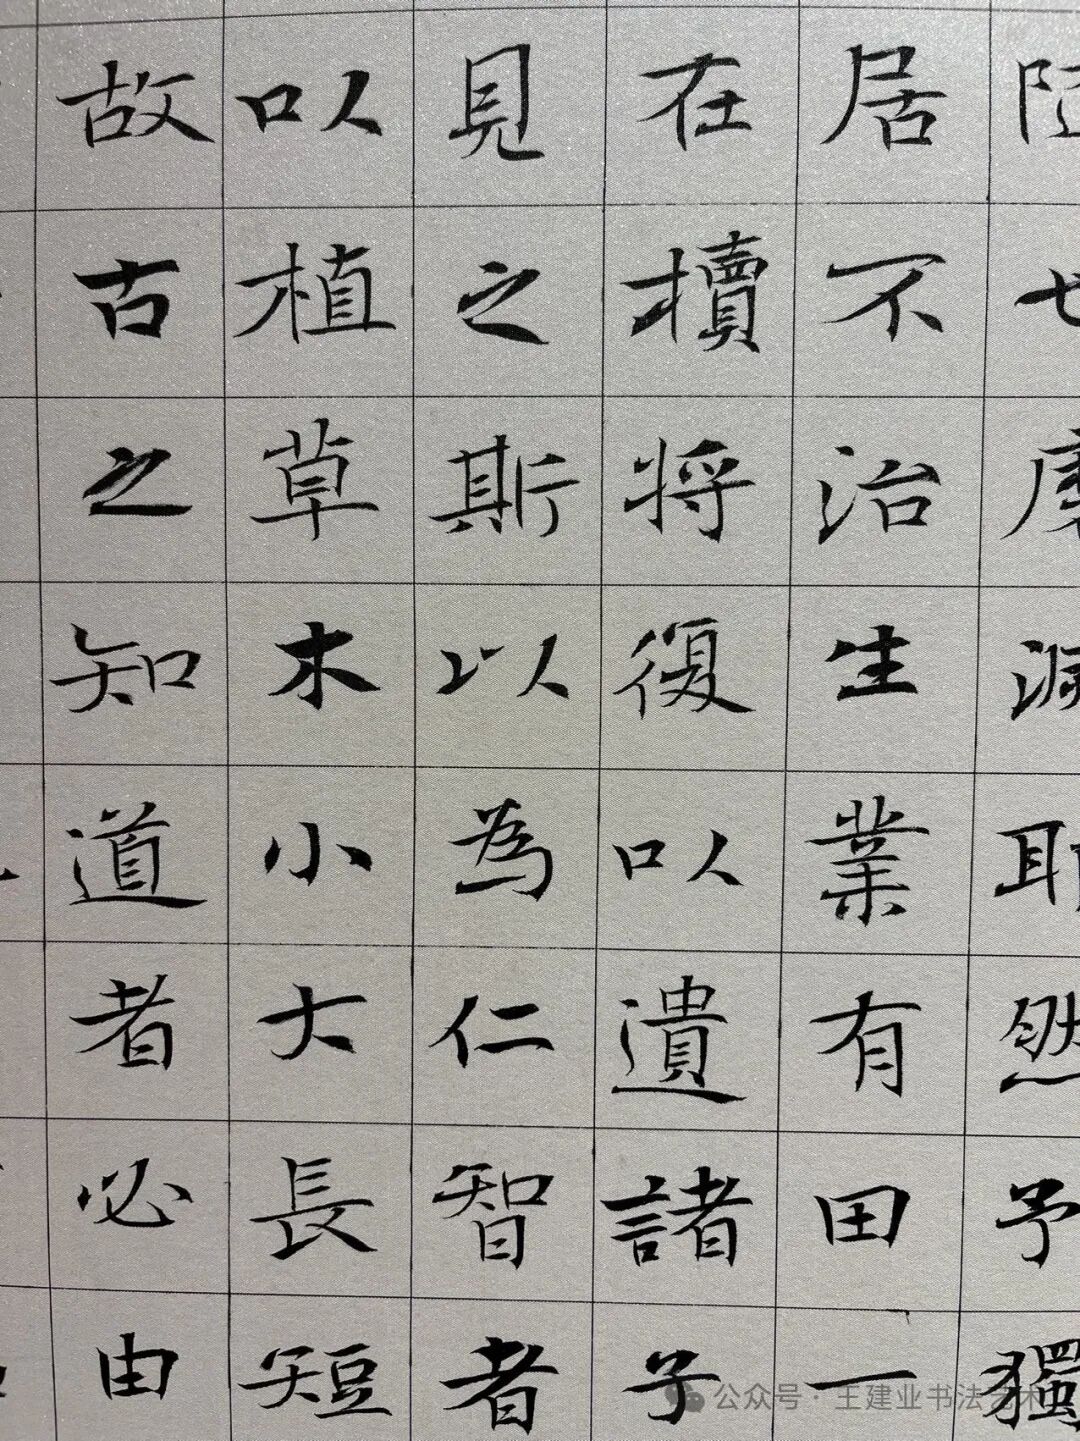 也耶然予獨
居不治生業有田一
在櫝將復以遺諸子
見之斯以為仁智者
以植草木小大長短
故古之知道者必由
公众号 · 王建业书法艺术